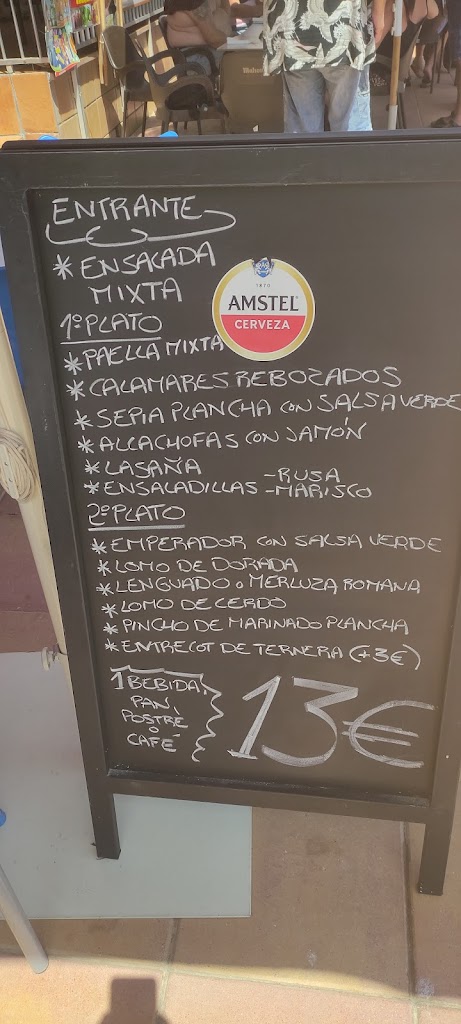 ENTRANTE
* ENSALADA
MIXTA
1870
AMSTEL
CERVEZA
1º PLATO
* PAELLA MIXTA
* CALAMARES REBOZADOS
* SEPIA PLANCHA CON SALSA VERDE
* ALCACHOFAS CON JAMÓN
* LASAÑA
* ENSALADILLAS -RUSA
-MARISCO
2º PLATO
* EMPERADOR CON SALSA VERDE
* LOMO DE DORADA
* LENGUADO O MERLUZA ROMANA
* LOMO DE CERDO
* PINCHO DE MARINADO PLANCHA
* ENTRECOT DE TERNERA (+3€)
1 BEBIDA,
PAN,
POSTRE
O
CAFÉ
13€